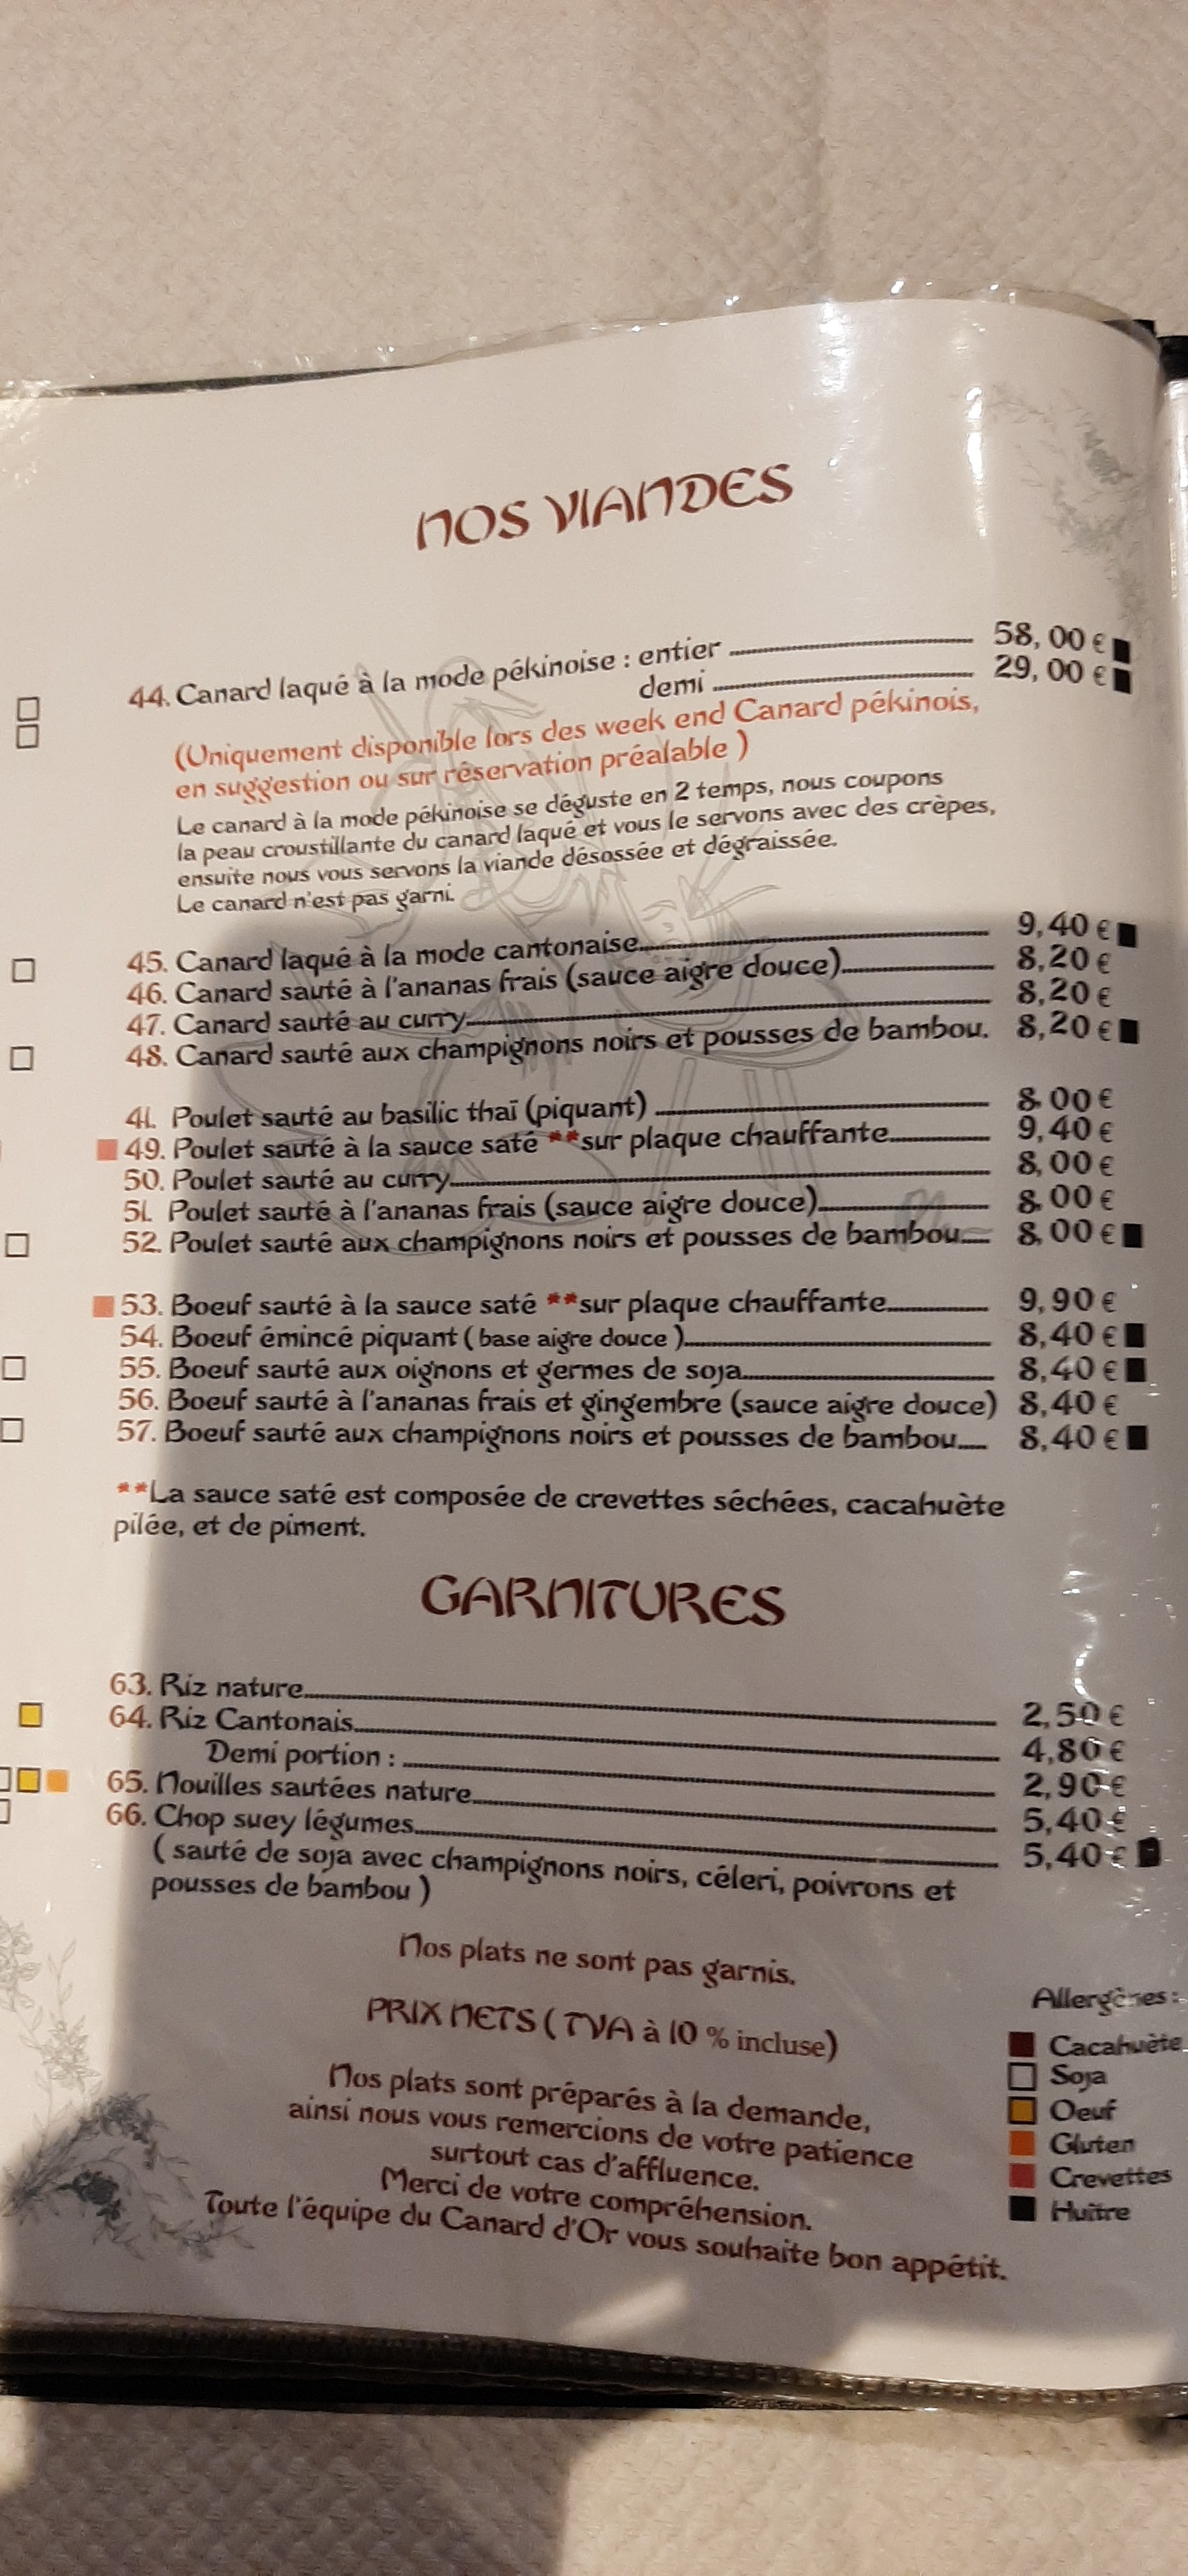 NOS VIANDES
44. Canard laqué à la mode pékinoise : entier 58,00 €
demi 29,00 €
(Uniquement disponible lors des week end Canard pékinois,
en suggestion ou sur réservation préalable )
Le canard à la mode pékinoise se déguste en 2 temps, nous coupons
la peau croustillante du canard laqué et vous le servons avec des crèpes,
ensuite nous vous servons la viande désossée et dégraissée.
Le canard n'est pas garni.
45. Canard laqué à la mode cantonaise 9,40 €
46. Canard sauté à l'ananas frais (sauce aigre douce) 8,20 €
47. Canard sauté au curry 8,20 €
48. Canard sauté aux champignons noirs et pousses de bambou. 8,20 €
41. Poulet sauté au basilic thaï (piquant) 8,00 €
49. Poulet sauté à la sauce saté **sur plaque chauffante 9,40 €
50. Poulet sauté au curry 8,00 €
51. Poulet sauté à l'ananas frais (sauce aigre douce) 8,00 €
52. Poulet sauté aux champignons noirs et pousses de bambou 8,00 €
53. Boeuf sauté à la sauce saté **sur plaque chauffante 9,90 €
54. Boeuf émincé piquant ( base aigre douce ) 8,40 €
55. Boeuf sauté aux oignons et germes de soja 8,40 €
56. Boeuf sauté à l'ananas frais et gingembre (sauce aigre douce) 8,40 €
57. Boeuf sauté aux champignons noirs et pousses de bambou 8,40 €
**La sauce saté est composée de crevettes séchées, cacahuète
pilée, et de piment.
GARNITURES
63. Riz nature 2,50 €
64. Riz Cantonais 4,80 €
Demi portion : 2,90 €
65. Nouilles sautées nature 5,40 €
66. Chop suey légumes 5,40 €
( sauté de soja avec champignons noirs, céleri, poivrons et
pousses de bambou )
Nos plats ne sont pas garnis.
PRIX NETS ( TVA à 10 % incluse)
Nos plats sont préparés à la demande,
ainsi nous vous remercions de votre patience
surtout cas d'affluence.
Merci de votre compréhension.
Toute l'équipe du Canard d'Or vous souhaite bon appétit.
Allergènes :
Cacahuète
Soja
Oeuf
Gluten
Crevettes
Huître